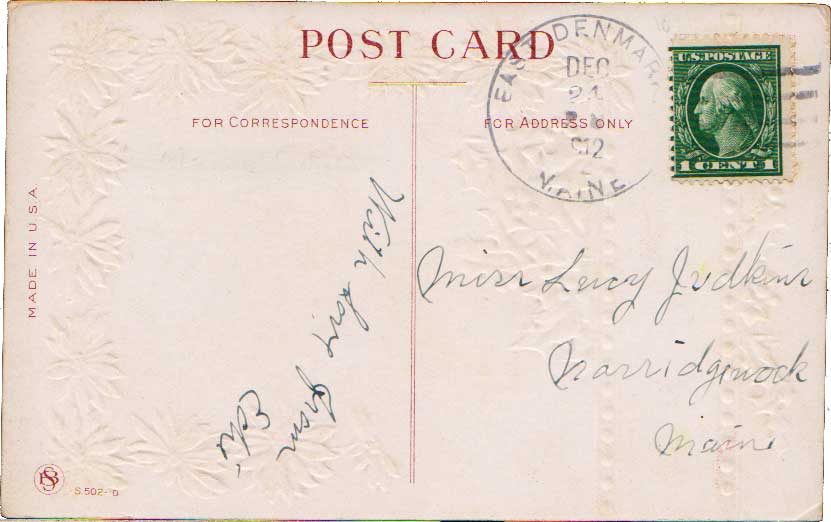 POST CARD
FOR CORRESPONDENCE
FOR ADDRESS ONLY
EAST DENMARK
DEC
24
MAINE
U.S. POSTAGE
1 CENT 1
MADE IN U.S.A
With
from
Miss Lucy Judkins
Norridgewock
Maine
S. 502-D